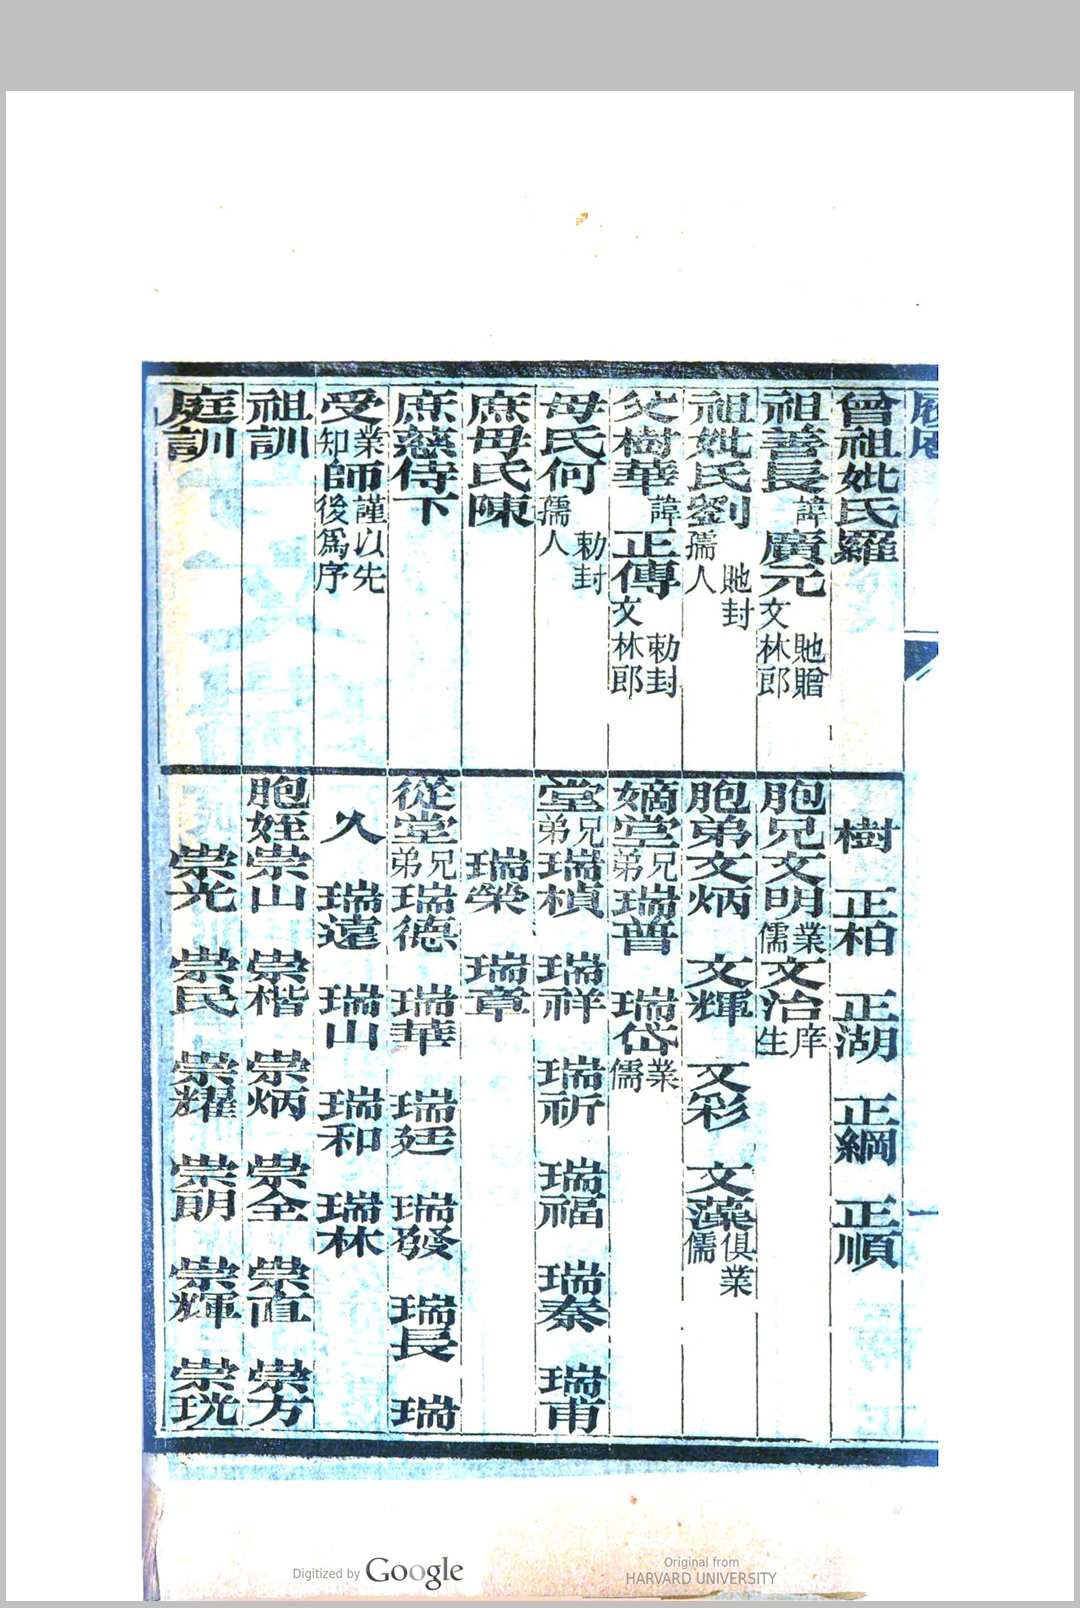 履歷
一
曾祖妣氏羅
祖善長諱廣元貤贈文林郎
祖妣氏劉貤封孺人
父樹華諱正傳勅封文林郎
母氏何勅封孺人
庶母氏陳
庶慈侍下
受業知師謹以先後爲序
祖訓
庭訓
樹 正柏 正湖 正綱 正順
胞兄文明業儒文治庠生
胞弟文炳 文輝 文彩 文藻俱業儒
嫡堂兄弟瑞普 瑞岱業儒
堂兄弟瑞楨 瑞祥 瑞祈 瑞福 瑞秦 瑞甫
瑞榮 瑞章
從堂兄弟瑞德 瑞華 瑞廷 瑞發 瑞長 瑞
久 瑞遠 瑞山 瑞和 瑞林
胞姪崇山 崇楷 崇炳 崇全 崇直 崇方
崇光 崇民 崇耀 崇朗 崇輝 崇珖
Digitized by Google
Original from
HARVARD UNIVERSITY